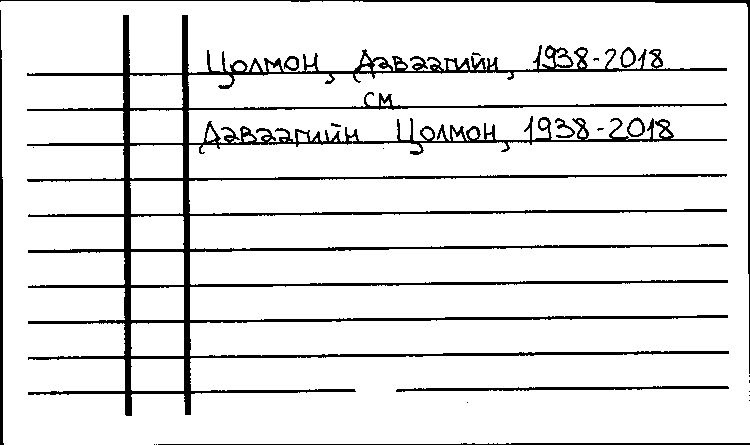 Цолмон, Даваагийн, 1938-2018
см
Даваагийн Цолмон, 1938-2018